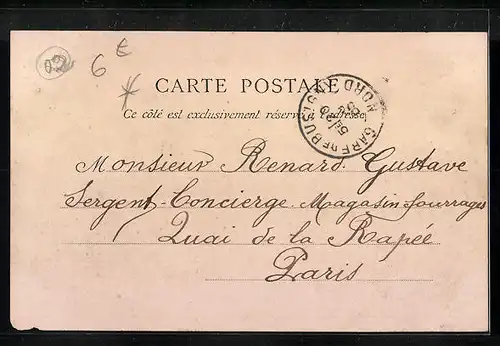 02 6 €
CARTE POSTALE
Ce côté est exclusivement réservé à l'adresse
GARE DE BUSIGNY
NORD
Monsieur Renard Gustave
Sergent-Concierge Magasin fourrages
Quai de la Rapée
Paris